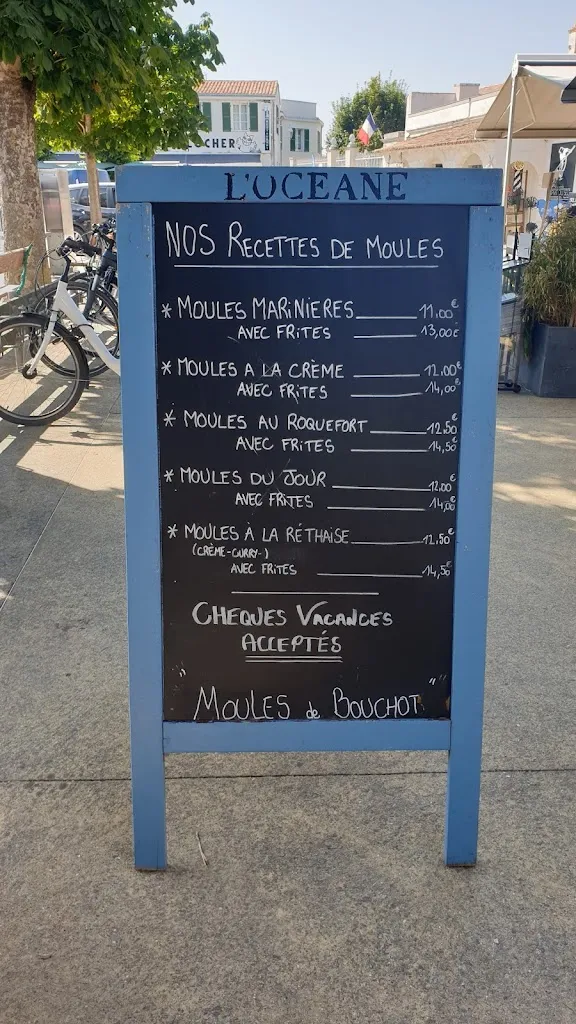 OCHER
L'OCEANE
NOS RECETTES DE MOULES
* MOULES MARINIERES 11,00€
AVEC FRITES 13,00€
* MOULES A LA CRÈME 12.00€
AVEC FRITES 14,00€
* MOULES AU ROQUEFORT 12.50€
AVEC FRITES 14,50€
* MOULES DU JOUR 12,00€
AVEC FRITES 14,00€
* MOULES À LA RÉTHAISE 12.50€
(CRÈME-CURRY-)
AVEC FRITES 14,50€
CHEQUES VACANCES
ACCEPTÉS
"MOULES de BOUCHOT"